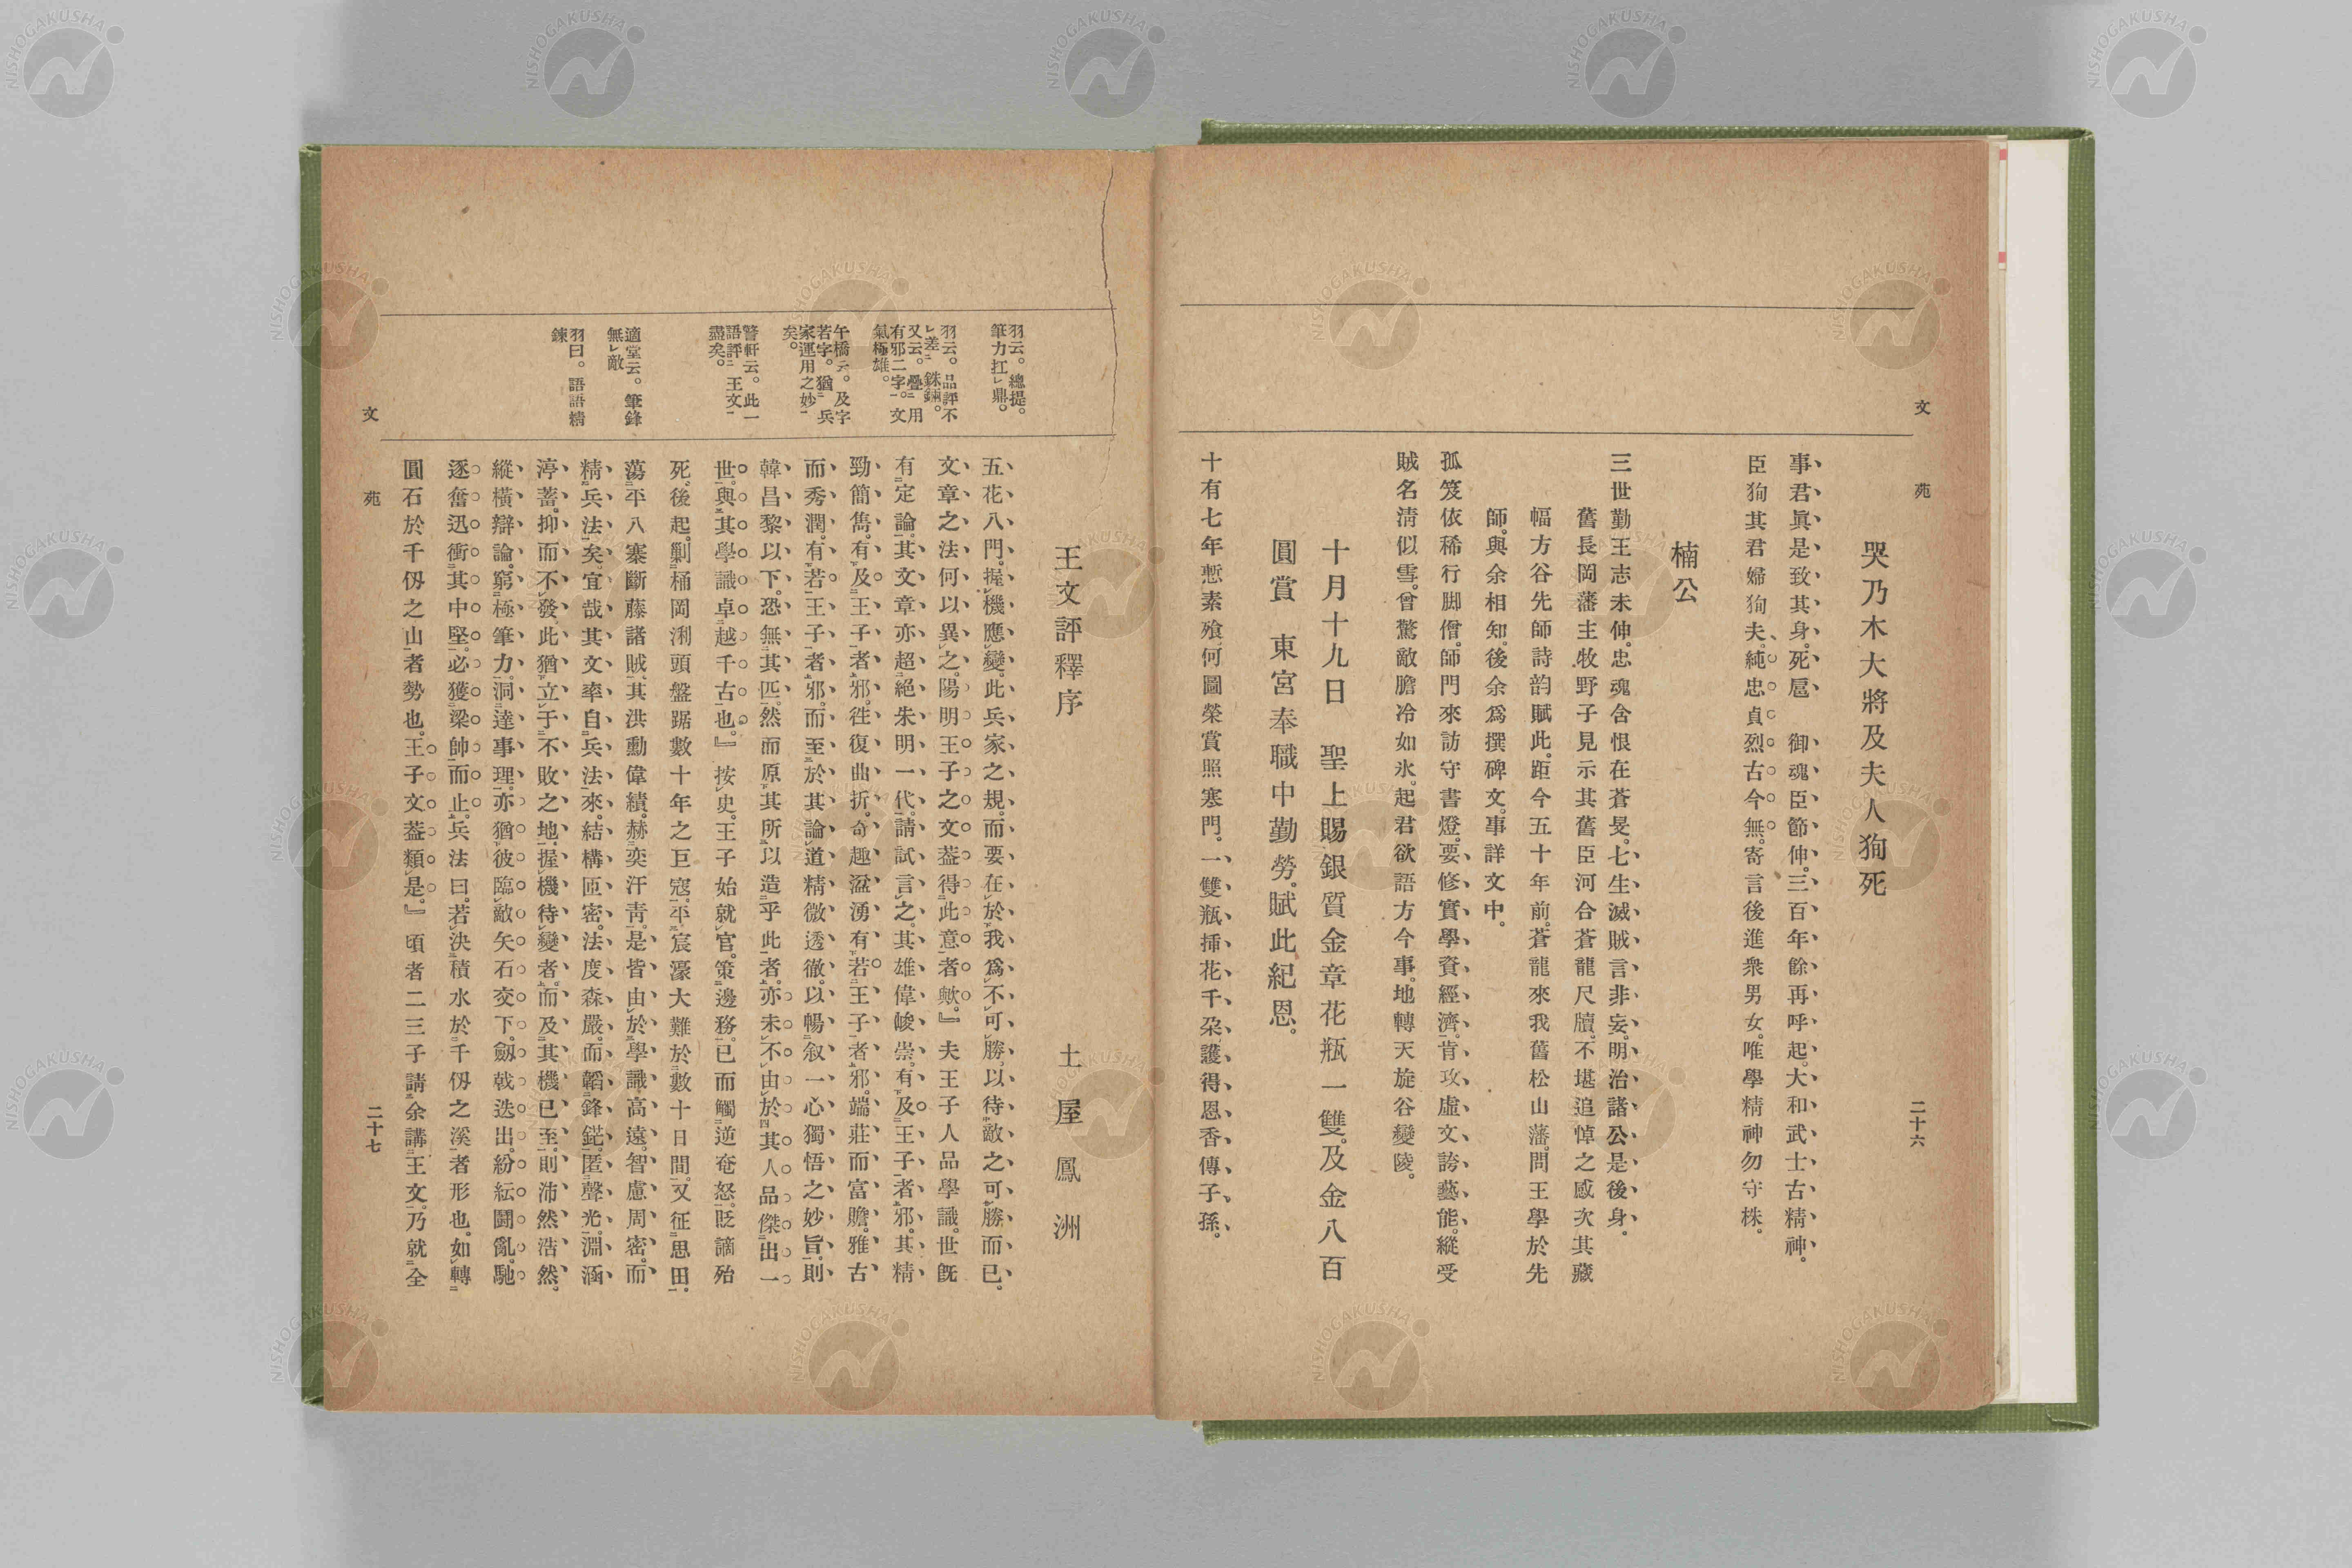 文 苑 二十六
哭乃木大將及夫人狥死
事君眞是致其身。死扈 御魂臣節伸。三百年餘再呼起。大和武士古精神。
臣狥其君婦狥夫、純忠貞烈古今無。寄言後進衆男女。唯學精神勿守株。
楠公
三世勤王志未伸。忠魂含恨在蒼旻。七生滅賊言非妄。明治諸公是後身。
舊長岡藩主牧野子見示其舊臣河合蒼龍尺牘。不堪追悼之感次其藏
幅方谷先師詩韵賦此。距今五十年前。蒼龍來我舊松山藩。問王學於先
師。與余相知。後余爲撰碑文。事詳文中。
孤笈依稀行脚僧。師門來訪守書燈。要修實學資經濟。肯攻虛文誇藝能。縱受
賊名淸似雪。曾驚敵膽冷如氷。起君欲語方今事。地轉天旋谷變陵。
十月十九日 聖上賜銀質金章花瓶一雙。及金八百
圓賞 東宮奉職中勤勞。賦此紀恩。
十有七年慙素飱。何圖榮賞照寒門。一雙瓶揷花千朶。護得恩香傳子孫。
王文評釋序 土屋鳳洲
五花八門。握機應變。此兵家之規。而要在於我爲不可勝。以待敵之可勝而已。
文章之法何以異之。陽明王子之文葢得此意者歟。』夫王子人品學識。世旣
有定論。其文章亦超絕朱明一代。請試言之。其雄偉峻崇。有及王子者邪。其精
勁簡雋。有及王子者邪。徃復曲折。奇趣溢湧。有若王子者邪。端莊而富贍。雅古
而秀潤。有若王子者邪。而至於其論道精微透徹。以暢叙一心獨悟之妙旨。則
韓昌黎以下。恐無其匹。然而原其所以造乎此者。亦未不由於其人品傑出一
世。與其學識卓越千古也。』按史。王子始就官。策邊務。已而觸逆奄怒。貶謫殆
死。後起。剿桶岡浰頭盤踞數十年之巨寇。平宸濠大難於數十日間。又征思田。
蕩平八寨斷藤諸賊。其洪勳偉績。赫奕汗靑。是皆由於學識高遠。智慮周密。而
精兵法矣。宜哉其文率自兵法來。結構匝密。法度森嚴。而韜鋒鋩。匿聲光。淵涵
渟蓄。抑而不發此猶立于不敗之地。握機待變者。而及其機已至。則沛然浩然。
縱橫辯論。窮極筆力。洞達事理。亦猶彼臨敵矢石交下。劔戟迭出。紛紜鬪亂。馳
逐奮迅。衝其中堅。必獲梁帥而止。兵法曰。若決積水於千仭之溪者形也。如轉
圓石於千仭之山者勢也。王子文葢類是。』頃者二三子請余講王文。乃就全
羽云。總提。
筆力扛鼎。
羽云。品評不
差銖錙。
又云。疊用
有邪二字。文
氣極雄。
午橋云。及字
若字。猶兵
家運用之妙
矣。
警軒云。此一
語評王文
盡矣。
適堂云。筆鋒
無敵
羽曰。語語精
鍊
文 苑 二十七